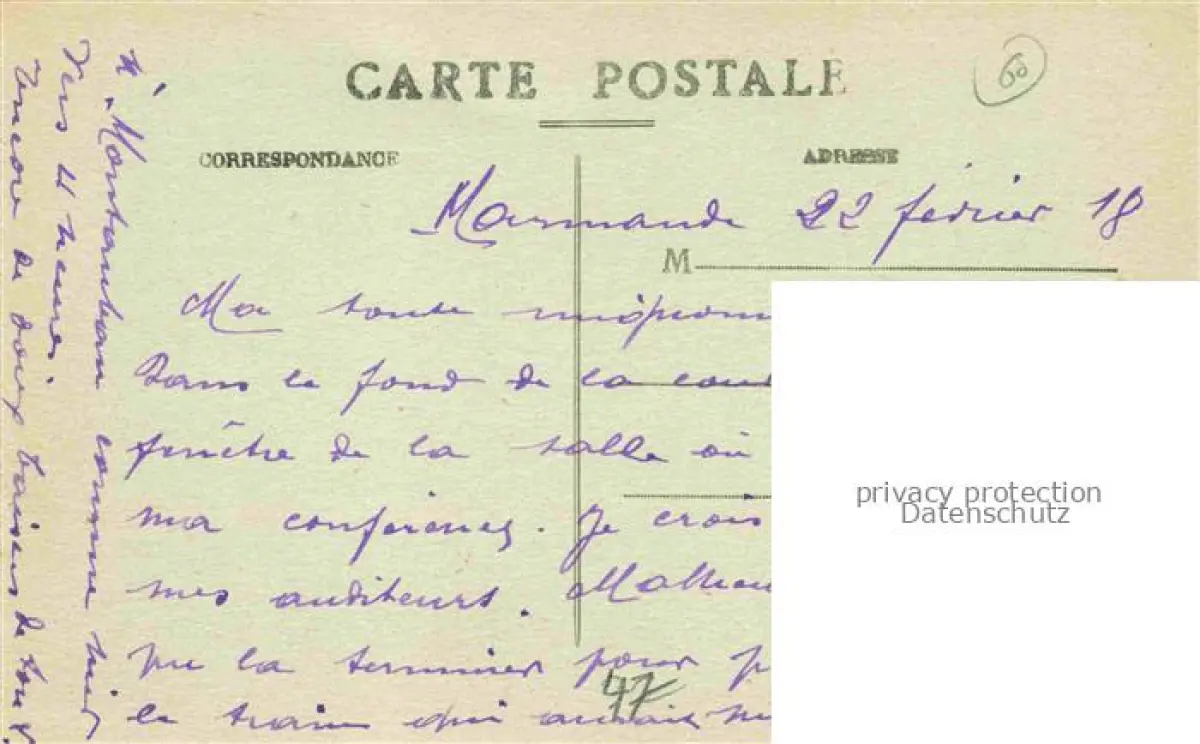 CARTE POSTALE
60
CORRESPONDANCE
ADRESSE
Marmande 22 février 18
M
Ma toute mignonne
Dans le fond de la cour
fenêtre de la salle où
ma conférence. Je crois
mes auditeurs. Malheu
pu la terminer pour p
le train qui aurait m
47
à Montauban comme hier
vers 4 heures.
Encore de doux baisers de ton
privacy protection
Datenschutz